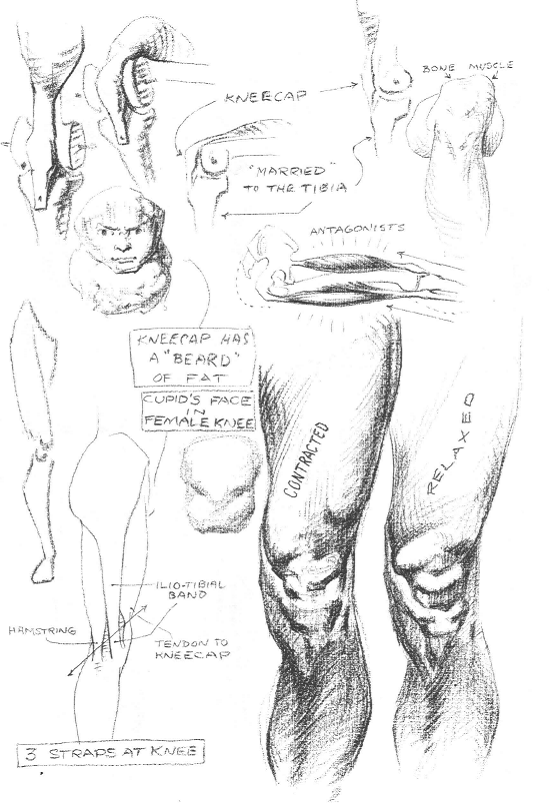 BONE MUSCLE
KNEECAP
"MARRIED"
TO THE TIBIA
ANTAGONISTS
KNEECAP HAS
A "BEARD"
OF FAT
CUPID'S FACE
IN
FEMALE KNEE
CONTRACTED
RELAXED
ILIO-TIBIAL
BAND
HAMSTRING
TENDON TO
KNEECAP
3 STRAPS AT KNEE